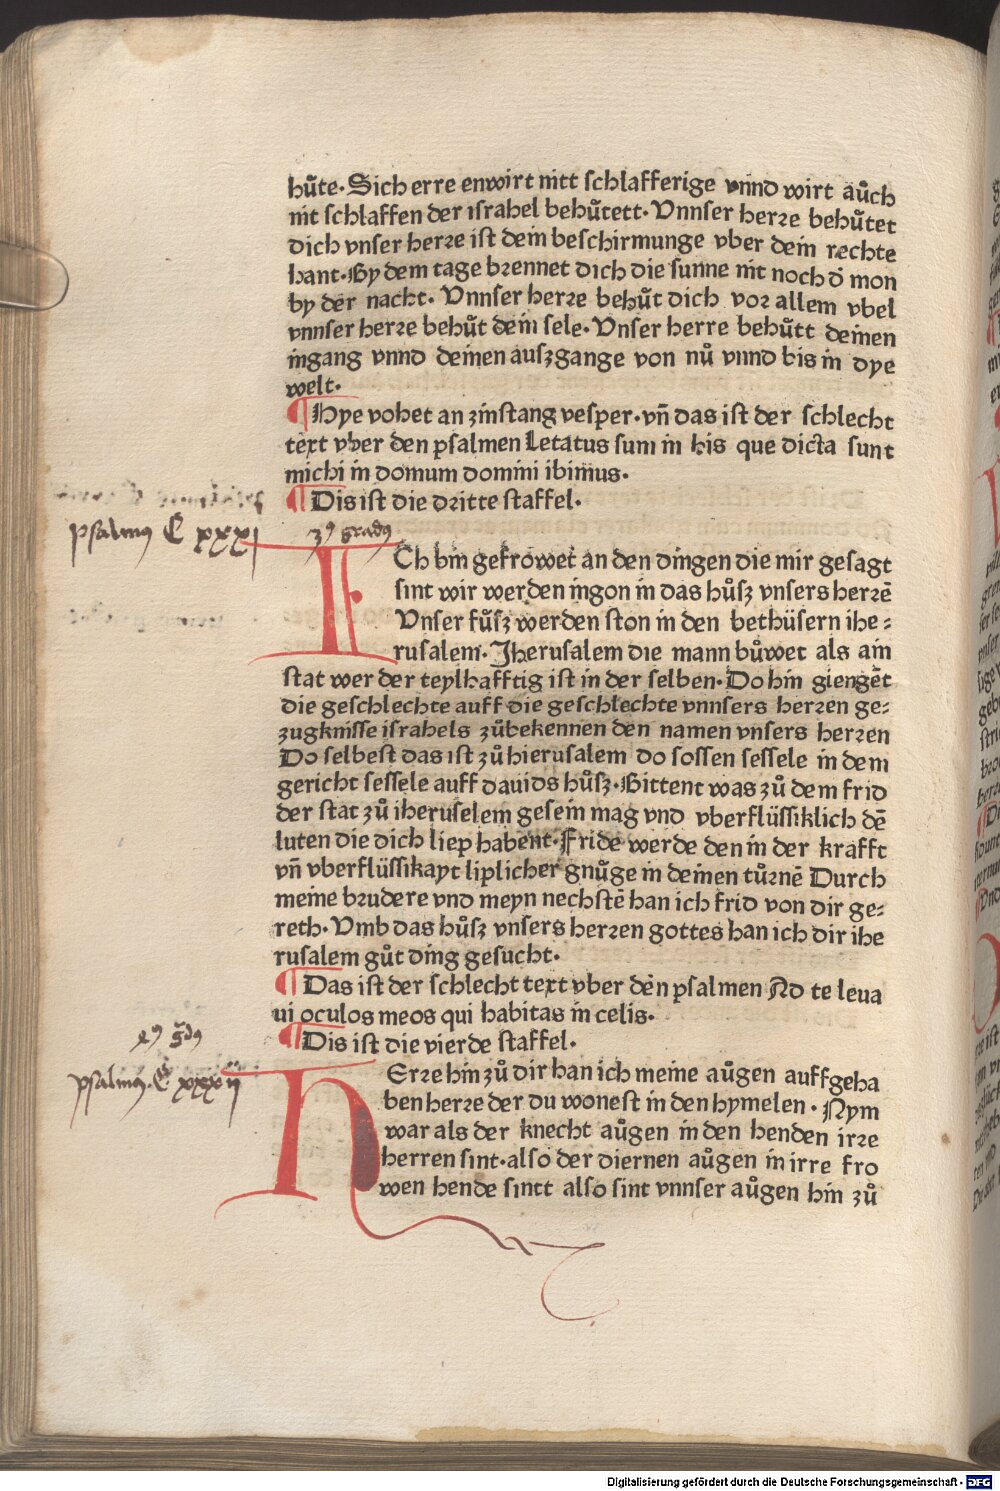 hůte. Sich erre enwirt nitt schlafferige vnnd wirt aůch
nit schlaffen der israhel behůtett. Vnnser herꝛe behůtet
dich vnser herꝛe ist dein beschirmunge vber dein rechte
hant. By dem tage bꝛennet dich die sunne nit noch d̕ mon
by der nacht. Vnnser herꝛe behůt dich voꝛ allem vbel
vnnser herꝛe behůt dein sele. Vnser herre behůtt deinen
ingang vnnd deinen auſzgange von nů vnnd bis in dye
welt.
¶ Hye vohet an zinstang vesper. vn̄ das ist der schlecht
text vber den psalmen Letatus sum in his que dicta sunt
michi in domum domini ibimus.
¶ Dis ist die dꝛitte staffel.
psalmꝰ C xxxj
3ꝰ gradꝰ
ICh bin gefrowet an den dingen die mir gesagt
sint wir werden ingon in das hůſz vnsers herꝛē
Vnser fůſz werden ston in den bethüsern ihe⸗
rusalem. Jherusalem die mann bůwet als ain
stat wer der teylhafftig ist in der selben. Do hin giengēt
die geschlechte auff die geschlechte vnnsers herꝛen ge⸗
zugknisse israhels zůbekennen den namen vnsers herꝛen
Do selbest das ist zů hierusalem do sossen sessele in dem
gericht sessele auff dauids hůſz. Bittent was zů dem frid
der stat zů iheruselem gesein mag vnd vberflüssiklich dē
luten die dich liep habent. Fride werde den in der krafft
vn̄ vberflüssikayt liplicher gnůge in deinen tůꝛnē Durch
meine bꝛudere vnd meyn nechstē han ich frid von dir ge⸗
reth. Vmb das hůſz vnsers herꝛen gottes han ich dir ihe
rusalem gůt ding gesucht.
¶ Das ist der schlecht text vber den psalmen Ad te leua
ui oculos meos qui habitas in celis.
¶ Dis ist die vierde staffel.
4ꝰ g̃dꝰ
psalmꝰ. C xxxij
HErꝛe hin zů dir han ich meine aůgen auffgeha
ben herꝛe der du wonest in den hymelen. Nym
war als der knecht aůgen in den henden irꝛe
herren sint. also der diernen aůgen in irre fro
wen hende sintt also sint vnnser aůgen hin zů
Digitalisierung gefördert durch die Deutsche Forschungsgemeinschaft - DFG